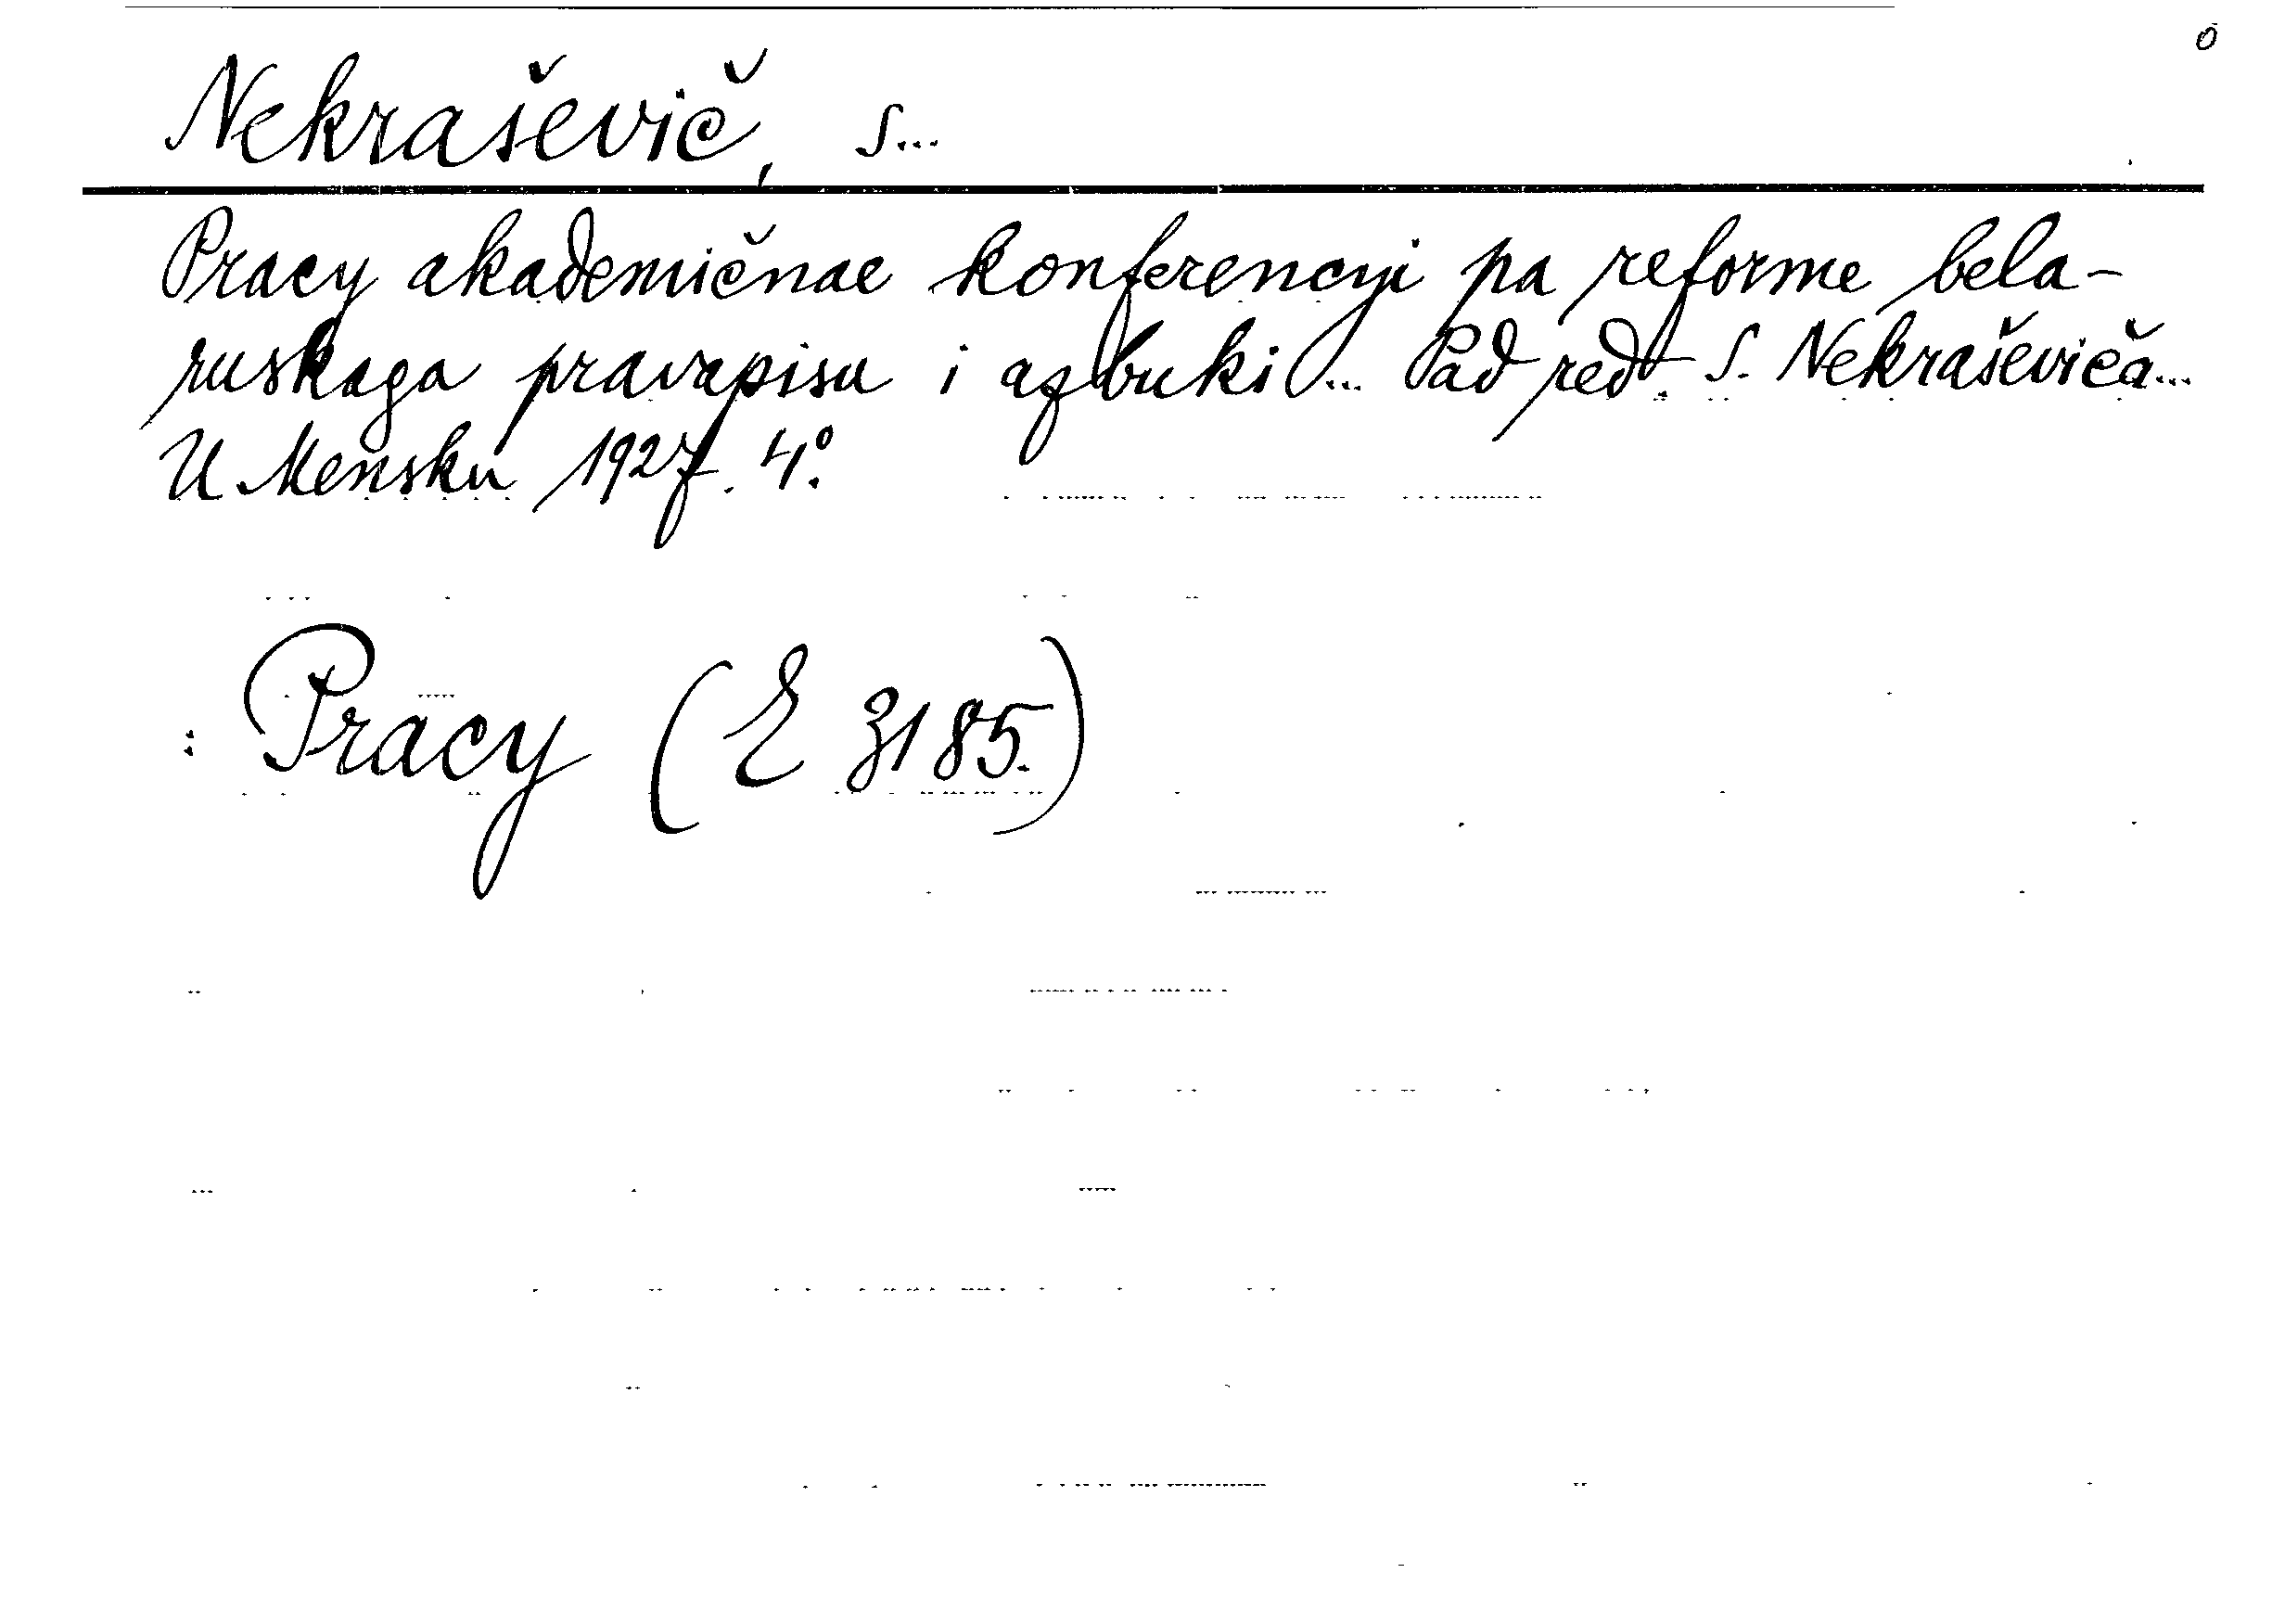 ō
Nekraševič, S...
Pracy akademičnae konferencyi pa reforme bela-
ruskaga pravapisu i azbuki... Pad red. S. Nekraševiča...
U Mensku 1927. 4°.
: Pracy (E 3185.)